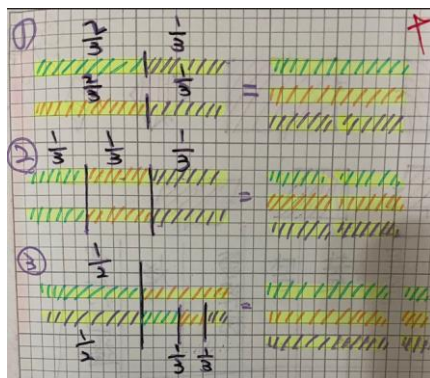 ① 2/3 1/3
2/3 1/3 =
② 1/3 1/3 1/3
=
③ 1/2
=
1/2 1/3 1/3